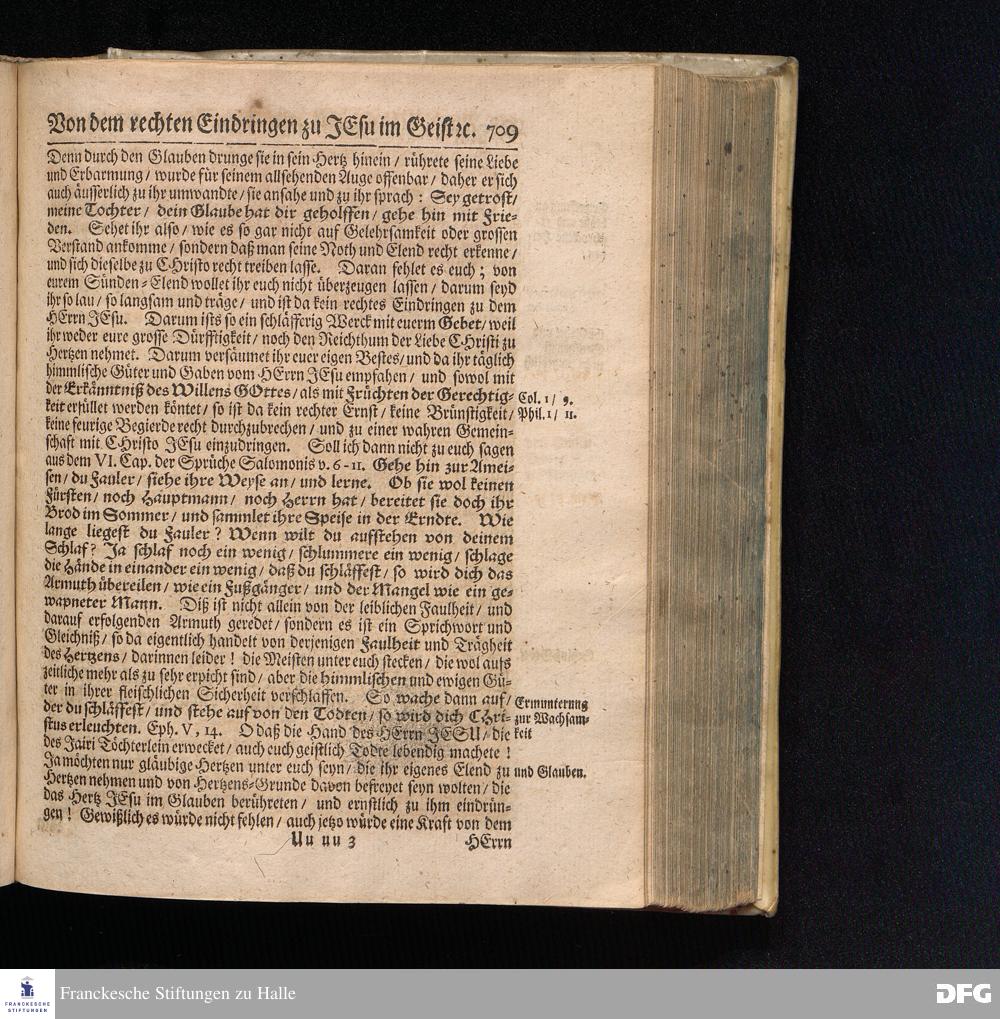 Von dem rechten Eindringen zu JEsu im Geist ꝛc. 709
Denn durch den Glauben drunge sie in sein Hertz hinein / rührete seine Liebe
und Erbarmung / wurde für seinem allsehenden Auge offenbar / daher er sich
auch äusserlich zu ihr umwandte / sie ansahe und zu ihr sprach : Sey getrost /
meine Tochter / dein Glaube hat dir geholffen / gehe hin mit Frie-
den. Sehet ihr also / wie es so gar nicht auf Gelehrsamkeit oder grossen
Verstand ankomme / sondern daß man seine Noth und Elend recht erkenne /
und sich dieselbe zu CHristo recht treiben lasse. Daran fehlet es euch ; von
eurem Sünden-Elend wollet ihr euch nicht überzeugen lassen / darum seyd
ihr so lau / so langsam und träge / und ist da kein rechtes Eindringen zu dem
HErrn JEsu. Darum ists so ein schläfferig Werck mit euerm Gebet / weil
ihr weder eure grosse Dürfftigkeit / noch den Reichthum der Liebe CHristi zu
Hertzen nehmet. Darum versäumet ihr euer eigen Bestes / und da ihr täglich
himmlische Güter und Gaben vom HErrn JEsu empfahen / und sowol mit
der Erkänntniß des Willens GOttes / als mit Früchten der Gerechtig-
Col. 1 / 9.
keit erfüllet werden köntet / so ist da kein rechter Ernst / keine Brünstigkeit /
Phil. 1 / 11.
keine feurige Begierde recht durchzubrechen / und zu einer wahren Gemein-
schaft mit CHristo JEsu einzudringen. Soll ich dann nicht zu euch sagen
aus dem VI. Cap. der Sprüche Salomonis v. 6-11. Gehe hin zur Amei-
sen / du Fauler / siehe ihre Weyse an / und lerne. Ob sie wol keinen
Fürsten / noch Hauptmann / noch Herrn hat / bereitet sie doch ihr
Brod im Sommer / und sammlet ihre Speise in der Erndte. Wie
lange liegest du Fauler ? Wenn wilt du aufstehen von deinem
Schlaf ? Ja schlaf noch ein wenig / schlummere ein wenig / schlage
die Hände in einander ein wenig / daß du schläffest / so wird dich das
Armuth übereilen / wie ein Fußgänger / und der Mangel wie ein ge-
wapneter Mann. Diß ist nicht allein von der leiblichen Faulheit / und
darauf erfolgenden Armuth geredet / sondern es ist ein Sprichwort und
Gleichniß / so da eigentlich handelt von derjenigen Faulheit und Trägheit
des Hertzens / darinnen leider ! die Meisten unter euch stecken / die wol aufs
zeitliche mehr als zu sehr erpicht sind / aber die himmlischen und ewigen Gü-
ter in ihrer fleischlichen Sicherheit verschlaffen. So wache dann auf /
Ermunterung
der du schläffest / und stehe auf von den Todten / so wird dich CHri-
zur Wachsam-
stus erleuchten. Eph. V, 14. O daß die Hand des HErrn JESU / die
keit
des Jairi Töchterlein erwecket / auch euch geistlich Todte lebendig machete !
Ja möchten nur gläubige Hertzen unter euch seyn / die ihr eigenes Elend zu
und Glauben.
Hertzen nehmen und von Hertzens-Grunde davon befreyet seyn wolten / die
das Hertz JEsu im Glauben berühreten / und ernstlich zu ihm eindrün-
gen ! Gewißlich es würde nicht fehlen / auch jetzo würde eine Kraft von dem
Uu uu 3
HErrn
FRANCKESCHE
STIFTUNGEN
Franckesche Stiftungen zu Halle
DFG